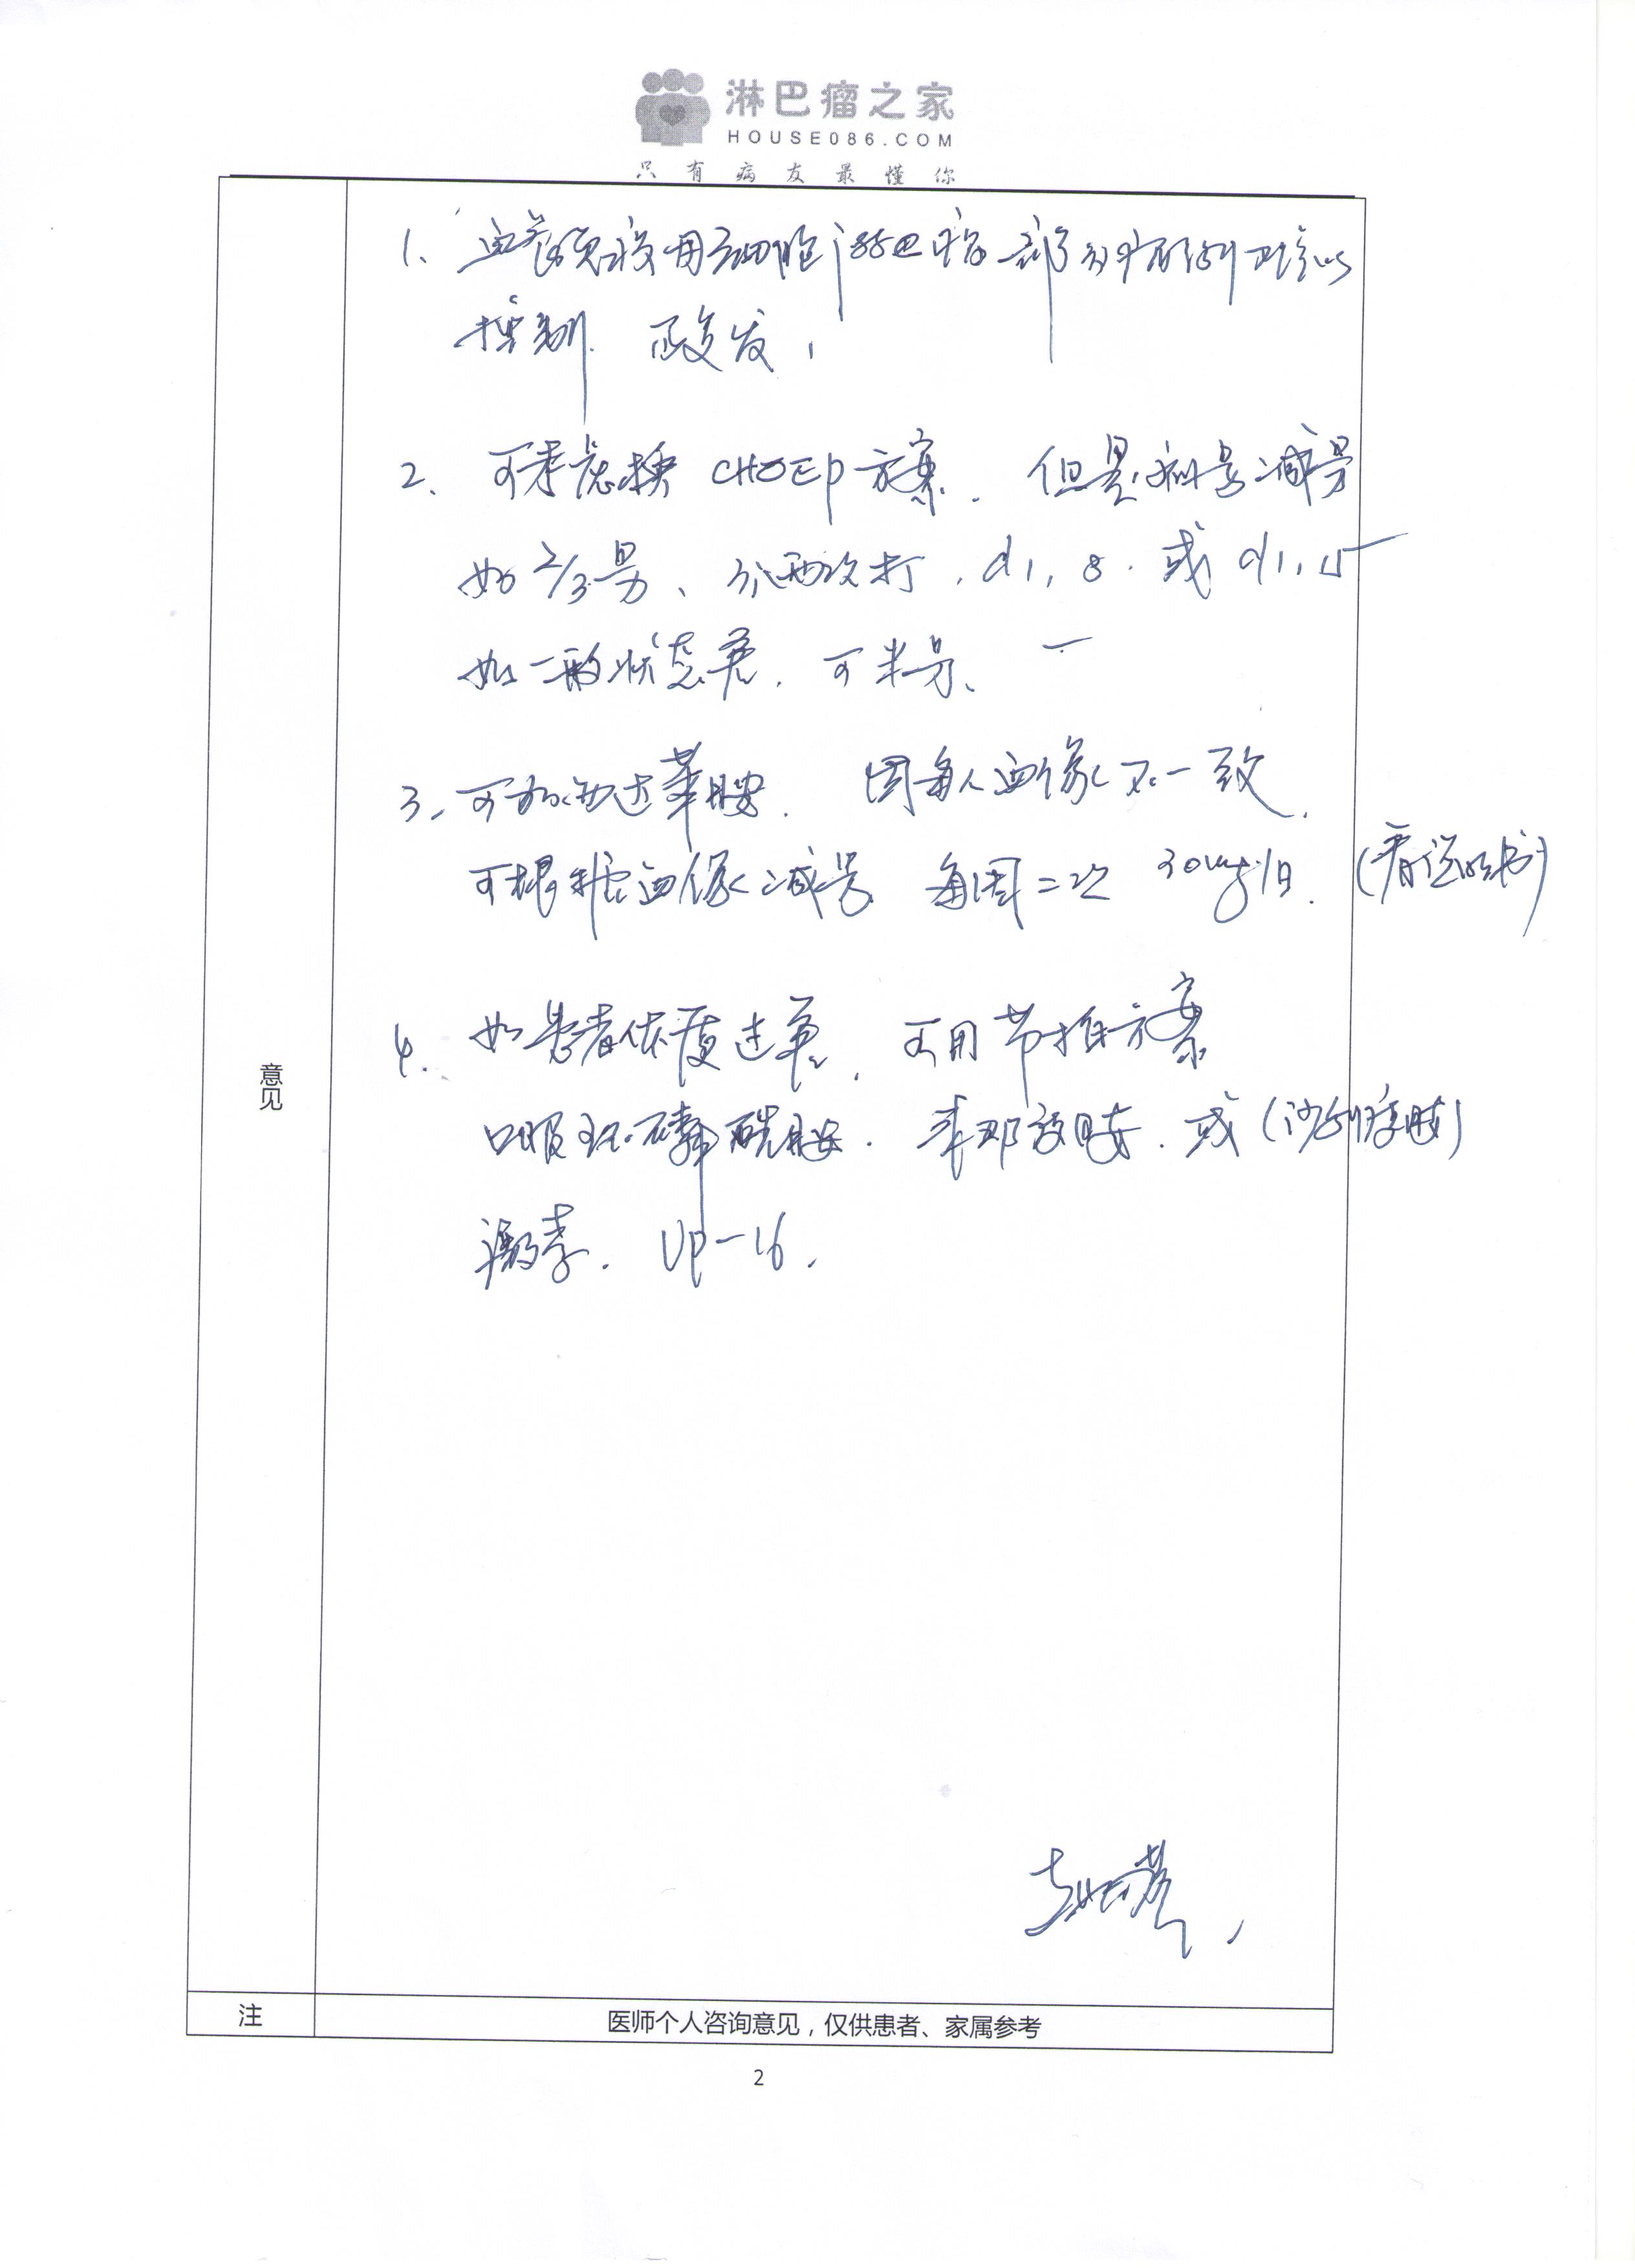 淋巴瘤之家
HOUSE086.COM
只有病友最懂你
1、血管免疫母细胞淋巴瘤部分病例难以
控制 或复发,
2、可考虑换 CHOEP方案. 但是剂量减量
如2/3量、分两次打, d1, 8. 或 d1, 15
如一般状态差, 可半量、
3、可加西达苯胺. 因每人血像不一致.
可根据血像减量 每周二次 30mg/日. (看说明书)
4. 如患者体质过差, 可用节拍方案
口服环磷酰胺. 来那度胺. 或(沙利度胺)
激素. VP-16.
意见
注
医师个人咨询意见,仅供患者、家属参考
2